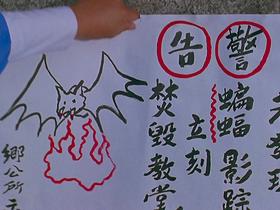 警告
蝙蝠影踪
立刻
焚毀教堂
鄉公所示